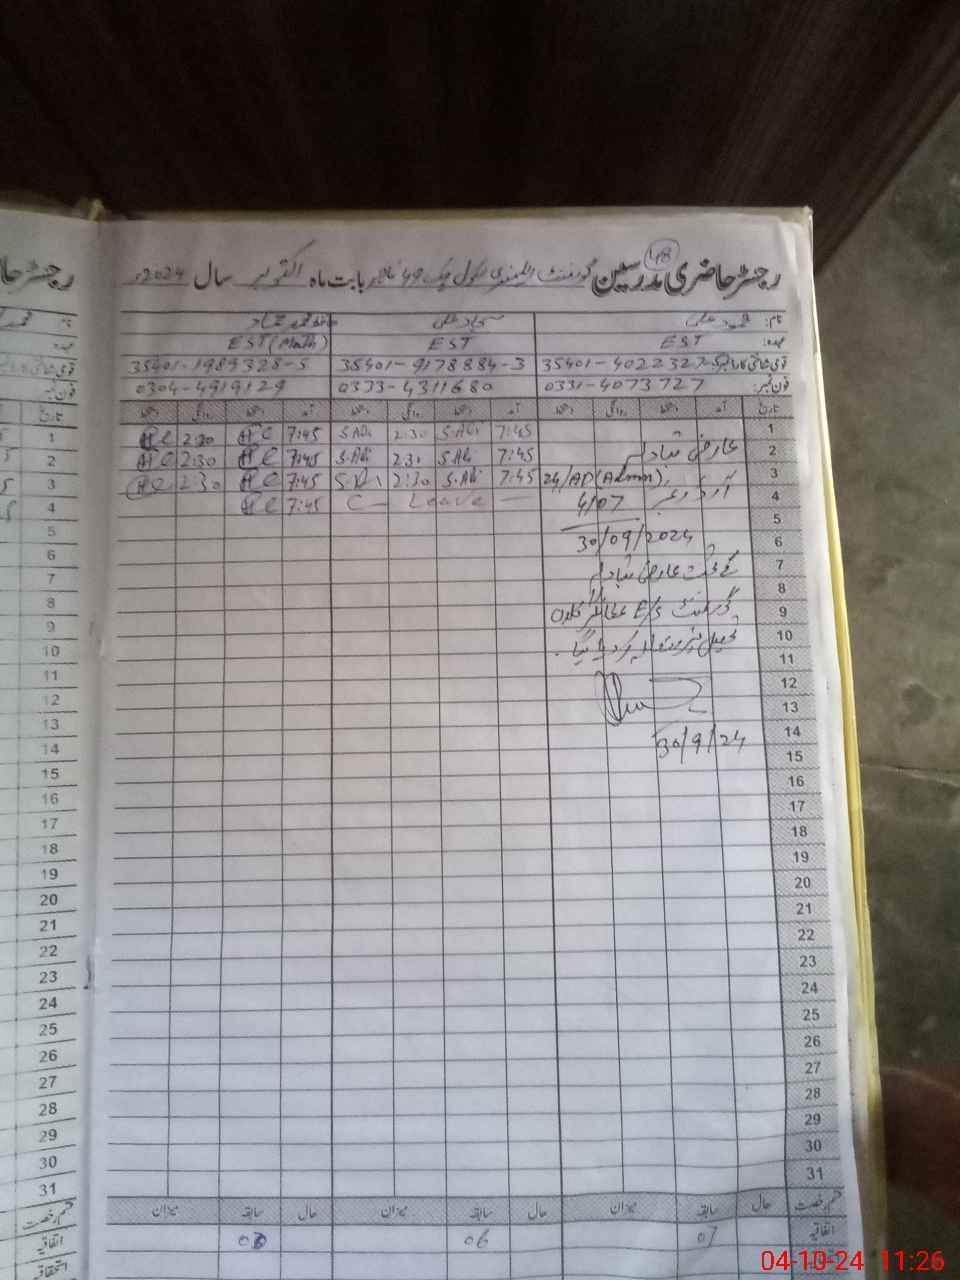 48
رجسٹر حاضری مدرسین گورنمنٹ ایلیمنٹری سکول چک 49 بابت ماہ اکتوبر سال 2024ء
نام: محمود علی سجاد علی حافظ محمد حماد
عہدہ: EST EST EST (Math)
قومی شناختی کارڈ نمبر: 35401-4022327- 35401-9178884-3 35401-1989328-5
فون نمبر: 0331-4073727 0333-4311680 0304-4919129
تاریخ آمد دستخط روانگی دستخط آمد دستخط روانگی دستخط آمد دستخط روانگی دستخط
1 7:45 S.Ali 2:30 S.Ali 7:45 2:30
2 عارضی تبادلہ 7:45 S.Ali 2:30 S.Ali 7:45 2:30
3 24/AD(Admin) 7:45 S.Ali 2:30 S.Ali 7:45 2:30
4 آرڈر نمبر 4/07 C- Leave 7:45
5
6 30/09/2024
7 کے تحت عارضی تبادلہ
8
9 گورنمنٹ E/S
10 کر دیا گیا۔
11
12
13
14 30/9/24
15
16
17
18
19
20
21
22
23
24
25
26
27
28
29
30
31
قسم رخصت حال سابقہ میزان حال سابقہ میزان حال سابقہ میزان
اتفاقیہ 07 06 03
استحقاقیہ
رجسٹر حا
تاریخ
1
2
3
4
5
6
7
8
9
10
11
12
13
14
15
16
17
18
19
20
21
22
23
24
25
26
27
28
29
30
31
قسم رخصت
اتفاقیہ
استحقاقیہ
04-10-24 11:26